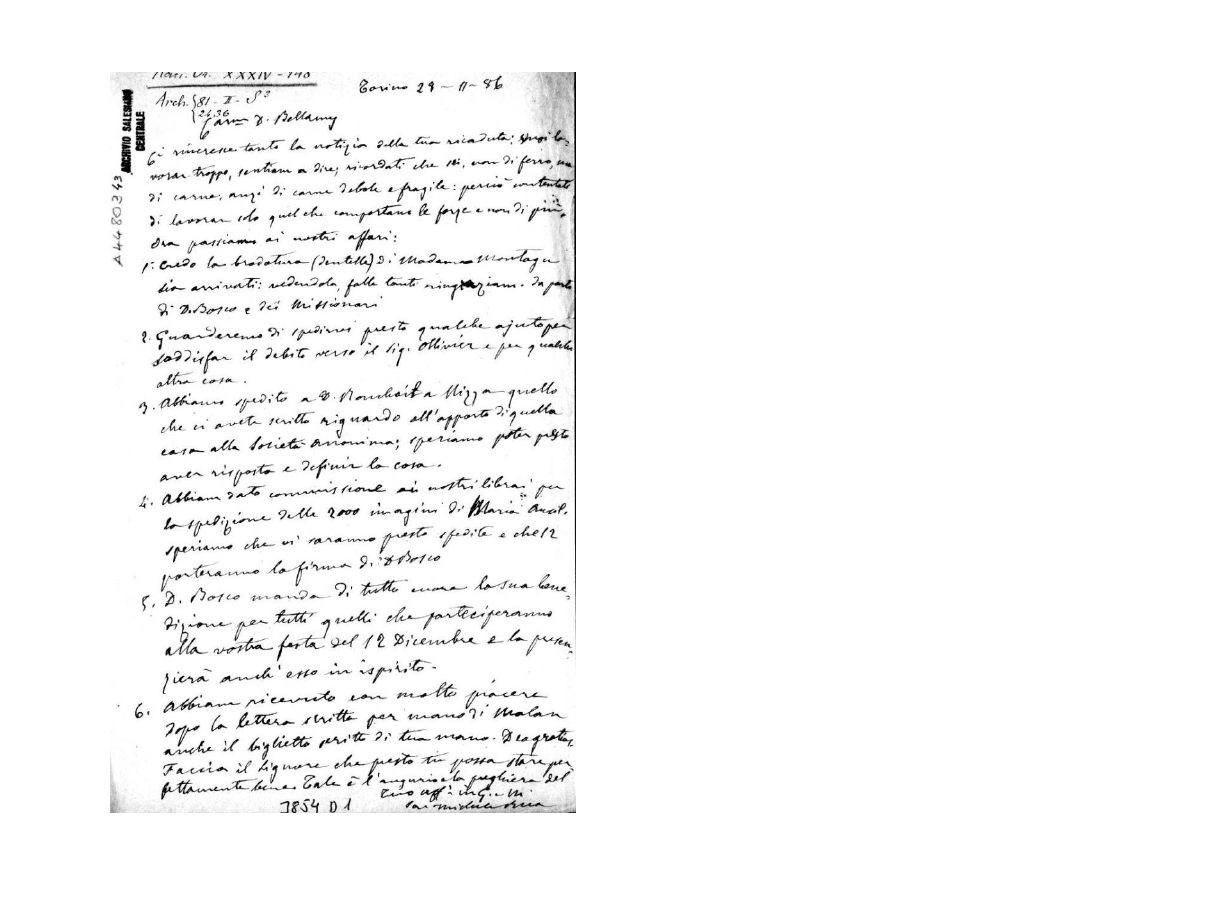 XXXIV - 148
Torino 29 - 11 - 86
Arch. 81 - II - S 3
2236
ARCHIVIO SALESIANO
CENTRALE
A4480343
Carmo D. Bellamy
Ci rincresce tanto la notizia della tua ricaduta; vuoi la-
vorar troppo, sentiam a dire; ricordati che sei, non di ferro, ma
di carne, anzi di carne debole e fragile: perciò contentati
di lavorar solo quel che comportano le forze e non di più.
Ora passiamo ai nostri affari:
1. Credo la bradatura (dentelle) di Madama Montagu
sia arrivati: vedendola, falle tanti ringraziam. da parte
di D. Bosco e dei Missionari
2. Guarderemo di spedirvi presto qualche ajuto per
soddisfar il debito verso il sig. Ollivier e per qualche
altra cosa.
3. Abbiamo spedito a D. Ronchail a Nizza quello
che ci avete scritto riguardo all'apporto di quella
casa alla Società Anonima; speriamo poter presto
aver risposta e definir la cosa.
4. Abbiam dato commissione ai nostri librai per
la spedizione delle 2000 imagini di Maria Auxil.
speriamo che vi saranno presto spedite e che 12
porteranno la firma di D Bosco
5. D. Bosco manda di tutto cuore la sua bene-
dizione per tutti quelli che parteciperanno
alla vostra festa del 12 Dicembre e la presen-
zierà anch'esso in ispirito.
6. Abbiam ricevuto con molto piacere
dopo la lettera scritta per mano di Malan
anche il biglietto scritto di tua mano. Deo gratias.
Faccia il Signore che presto tu possa stare per
fettamente bene. Tale è l'augurio e la preghiera del
Tuo aff. in G. e M.
Sac. Michele Rua
3854 D 1